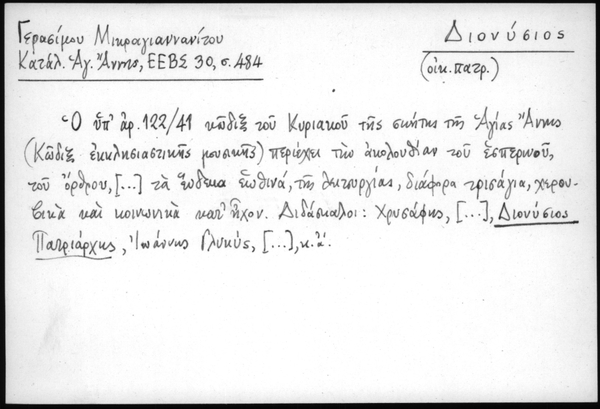 Γερασίμου Μικραγιαννανίτου
Κατάλ. Ἁγ. Ἄννης, ΕΕΒΣ 30, σ. 484
Διονύσιος
(οἰκ. πατρ.)
Ὁ ὑπ' ἀρ. 122/41 κῶδιξ τοῦ Κυριακοῦ τῆς σκήτης τῆς Ἁγίας Ἄννης
(Κῶδιξ ἐκκλησιαστικῆς μουσικῆς) περιέχει τὴν ἀκολουθίαν τοῦ ἑσπερινοῦ,
τοῦ ὄρθρου, [...] τὰ ἕνδεκα ἑωθινά, τῆς λειτουργίας, διάφορα τρισάγια, χερου-
βικὰ καὶ κοινωνικὰ κατ' ἦχον. Διδάσκαλοι: Χρυσάφης, [...], Διονύσιος
Πατριάρχης, Ἰωάννης Γλυκύς, [...], κ.ἄ.